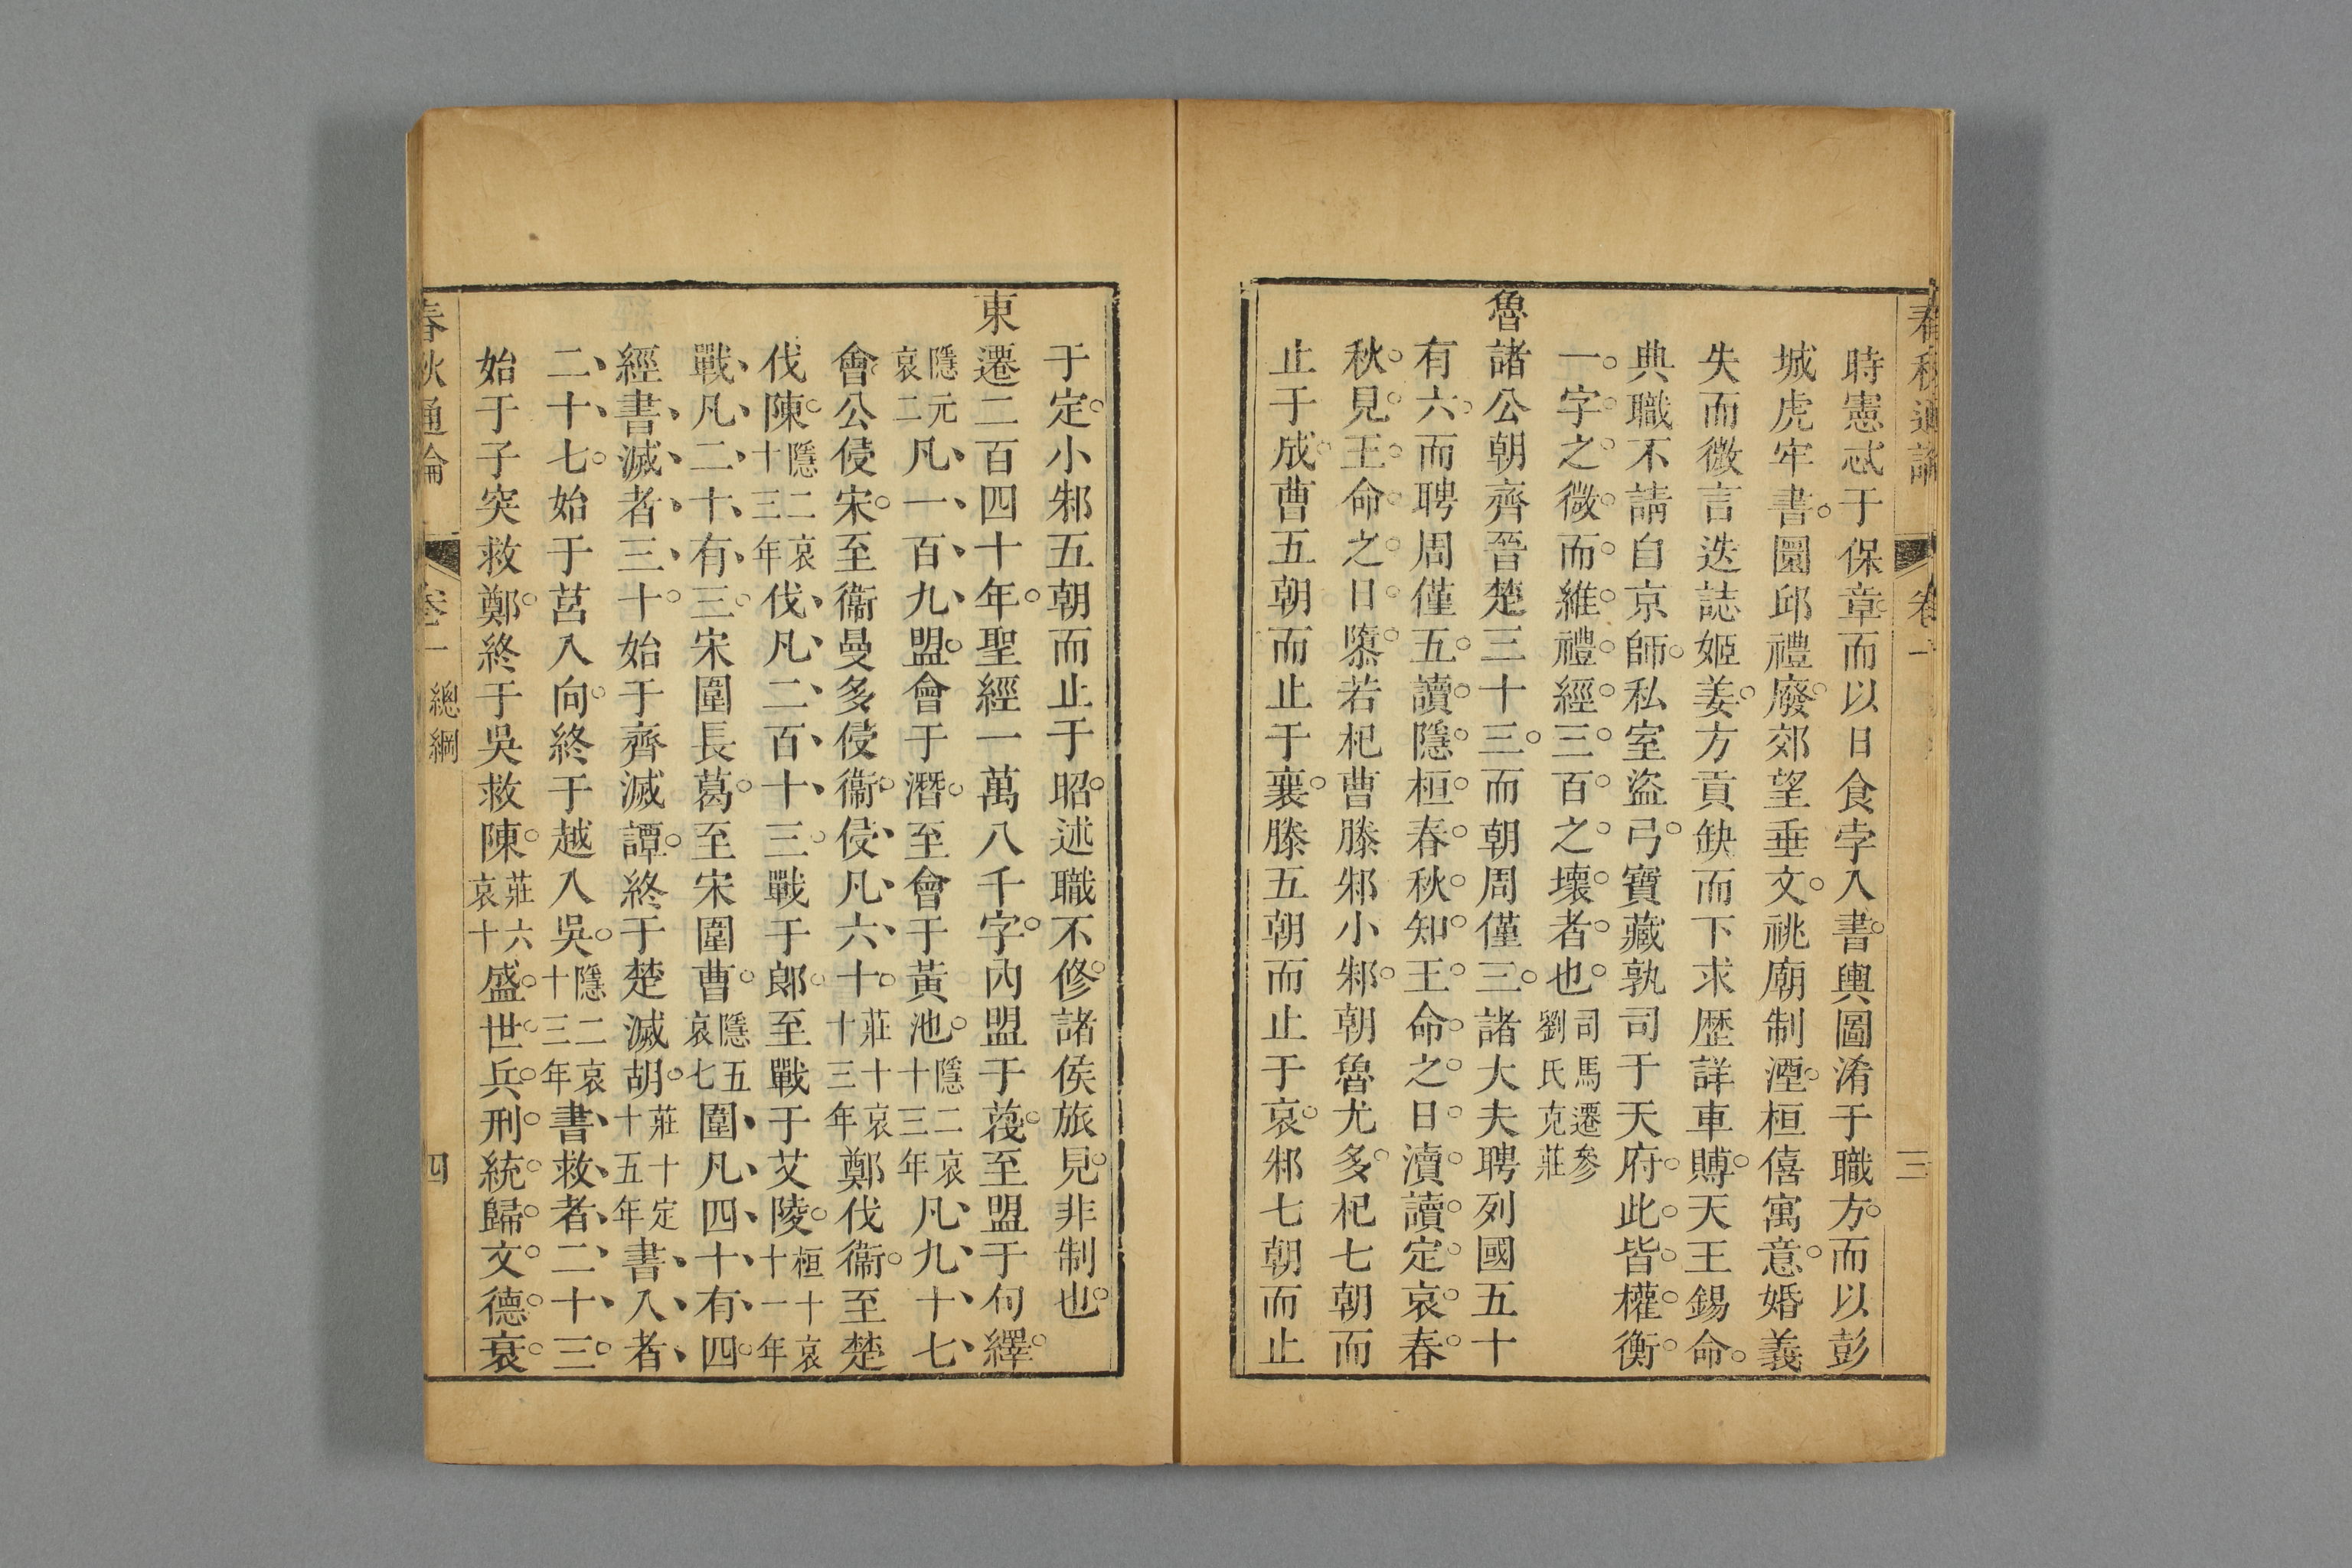 春秋通論 卷一 三
時憲忒于保章而以日食孛入書輿圖淆于職方而以彭
城虎牢書圜邱禮廢郊望垂文祧廟制湮桓僖寓意婚義
失而微言迭誌姬姜方貢缺而下求歷詳車賻天王錫命
典職不請自京師私室盜弓寶藏孰司于天府此皆權衡
一字之微而維禮經三百之壞者也司馬遷參劉氏克莊
魯諸公朝齊晉楚三十三而朝周僅三諸大夫聘列國五十
有六而聘周僅五讀隱桓春秋知王命之日瀆讀定哀春
秋見王命之日隳若杞曹滕邾小邾朝魯尤多杞七朝而
止于成曹五朝而止于襄滕五朝而止于哀邾七朝而止
于定小邾五朝而止于昭述職不修諸侯旅見非制也
東遷二百四十年聖經一萬八千字內盟于蔑至盟于句繹
隱元哀二凡一百九盟會于潛至會于黃池隱二哀十三年凡九十七
會公侵宋至衞曼多侵衞侵凡六十莊十哀十三年鄭伐衞至楚
伐陳隱二哀十三年伐凡二百十三戰于郎至戰于艾陵桓十哀十一年
戰凡二十有三宋圍長葛至宋圍曹隱五哀七圍凡四十有四
經書滅者三十始于齊滅譚終于楚滅胡莊十定十五年書入者
二十七始于莒入向終于越入吳隱二哀十三年書救者二十三
始于子突救鄭終于吳救陳莊六哀十盛世兵刑統歸文德衰
春秋通論 卷一 總綱 四